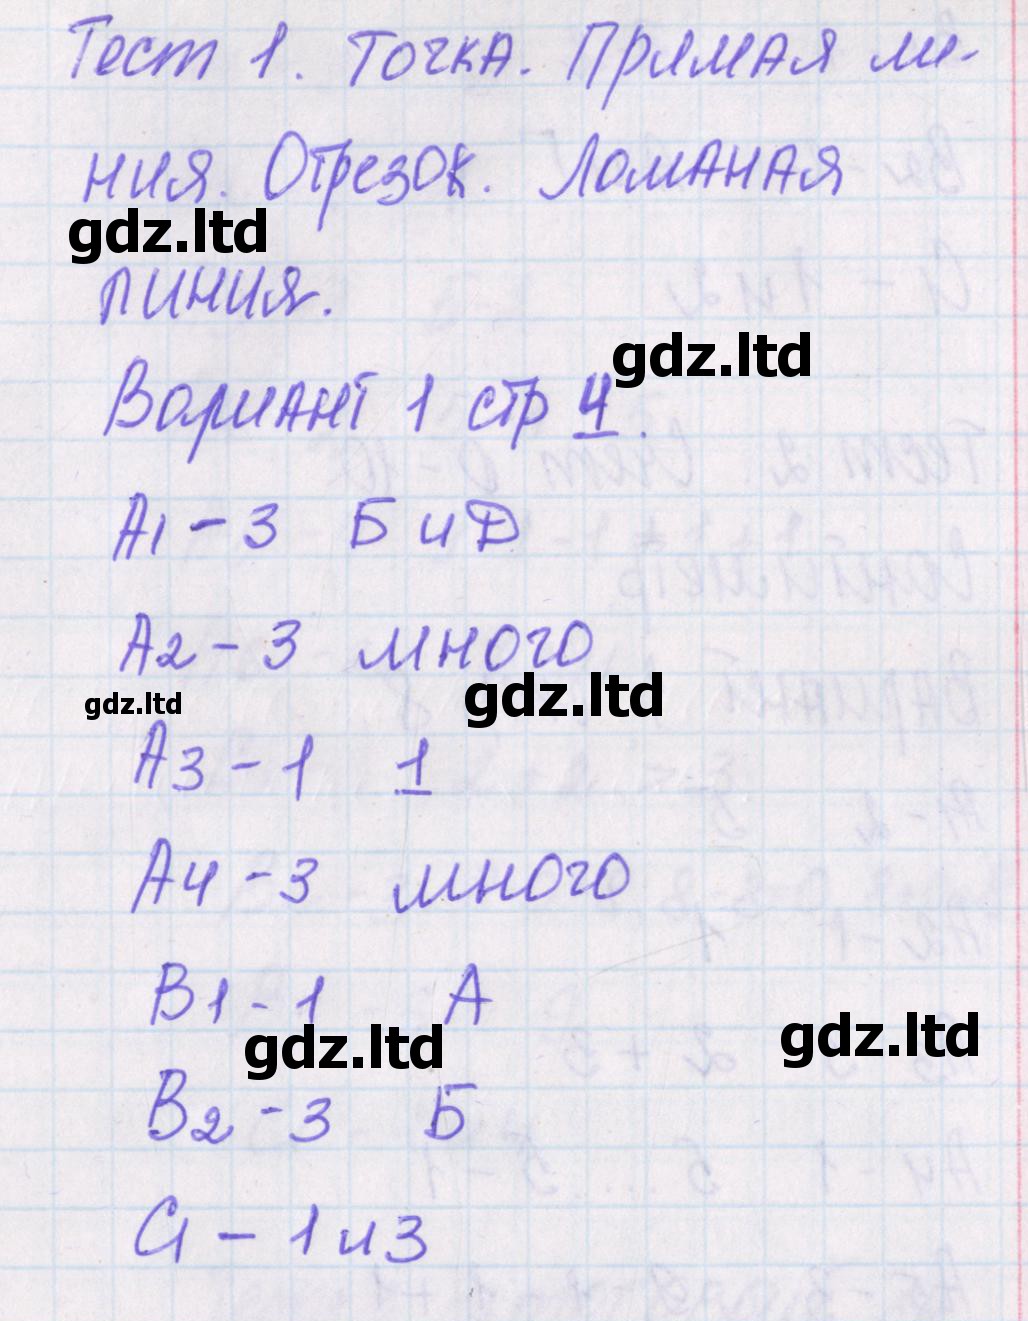 Тест 1. Точка. Прямая ли-
ния. Отрезок. Ломаная
gdz.ltd
линия.
gdz.ltd
Вариант 1 стр 4.
А1 - 3 Б и Д
А2 - 3 много
gdz.ltd
gdz.ltd
А3 - 1 1
А4 - 3 много
В1 - 1 А
gdz.ltd
gdz.ltd
В2 - 3 Б
С1 - 1 и 3